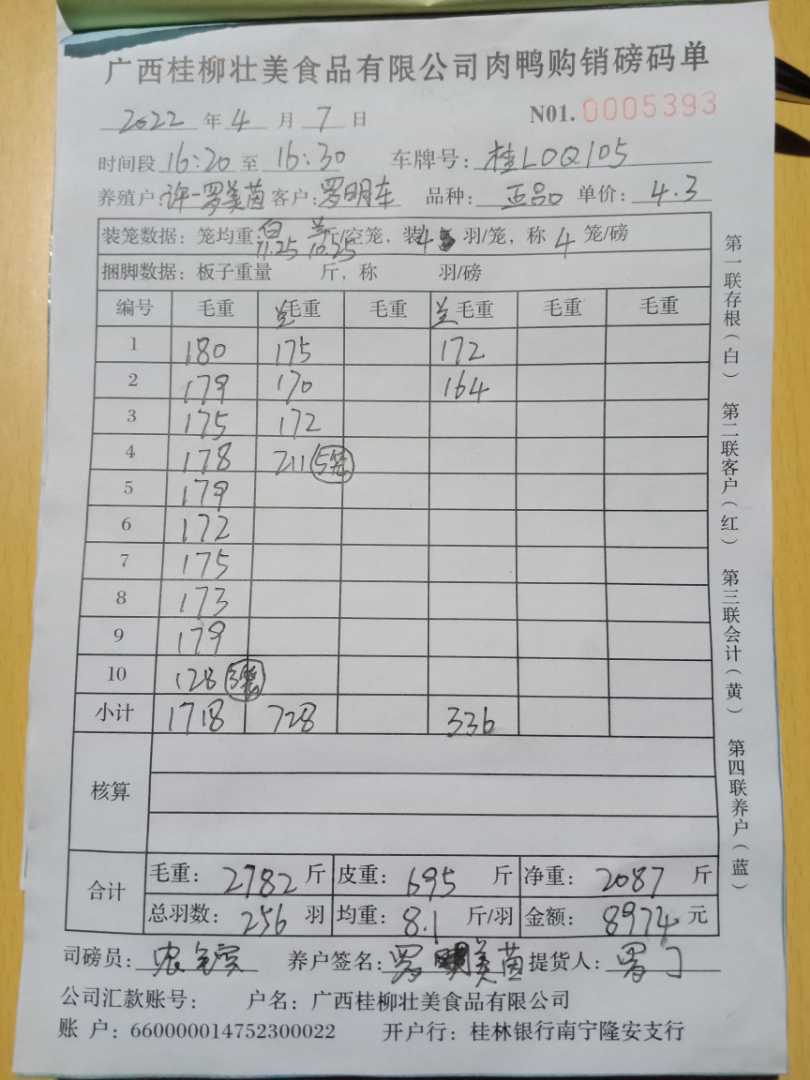 广西桂柳壮美食品有限公司肉鸭购销磅码单
2022 年 4 月 7 日 N01. 0005393
时间段 16:20 至 16:30 车牌号: 桂L0Q105
养殖户: 许一罗美茵 客户: 罗明车 品种: 正品 单价: 4.3
装笼数据: 笼均重 白11.25 兰10.25 斤/空笼, 装4 羽/笼, 称 4 笼/磅
捆脚数据: 板子重量 斤, 称 羽/磅
编号 毛重 兰毛重 毛重 兰毛重 毛重 毛重
1 180 175 172
2 179 170 164
3 175 172
4 178 211 5笼
5 179
6 172
7 175
8 173
9 179
10 128 3笼
小计 1718 728 336
核算
合计 毛重: 2782 斤 皮重: 695 斤 净重: 2087 斤
总羽数: 256 羽 均重: 8.1 斤/羽 金额: 8974 元
司磅员: 养户签名: 罗美茵 提货人:
公司汇款账号: 户名: 广西桂柳壮美食品有限公司
账 户: 660000014752300022 开户行: 桂林银行南宁隆安支行
第一联存根(白) 第二联客户(红) 第三联会计(黄) 第四联养户(蓝)